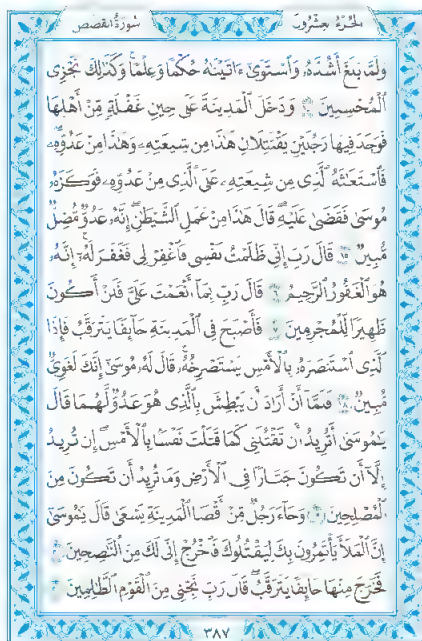 الجزء العشرون سورة القصص
وَلَمَّا بَلَغَ أَشُدَّهُۥ وَٱسْتَوَىٰٓ ءَاتَيْنَٰهُ حُكْمًا وَعِلْمًا ۚ وَكَذَٰلِكَ نَجْزِى
ٱلْمُحْسِنِينَ ١٤ وَدَخَلَ ٱلْمَدِينَةَ عَلَىٰ حِينِ غَفْلَةٍ مِّنْ أَهْلِهَا
فَوَجَدَ فِيهَا رَجُلَيْنِ يَقْتَتِلَانِ هَٰذَا مِن شِيعَتِهِۦ وَهَٰذَا مِنْ عَدُوِّهِۦ ۖ
فَٱسْتَغَٰثَهُ ٱلَّذِى مِن شِيعَتِهِۦ عَلَى ٱلَّذِى مِنْ عَدُوِّهِۦ فَوَكَزَهُۥ
مُوسَىٰ فَقَضَىٰ عَلَيْهِ ۖ قَالَ هَٰذَا مِنْ عَمَلِ ٱلشَّيْطَٰنِ ۖ إِنَّهُۥ عَدُوٌّ مُّضِلٌّ
مُّبِينٌ ١٥ قَالَ رَبِّ إِنِّى ظَلَمْتُ نَفْسِى فَٱغْفِرْ لِى فَغَفَرَ لَهُۥٓ ۚ إِنَّهُۥ
هُوَ ٱلْغَفُورُ ٱلرَّحِيمُ ١٦ قَالَ رَبِّ بِمَآ أَنْعَمْتَ عَلَىَّ فَلَنْ أَكُونَ
ظَهِيرًا لِّلْمُجْرِمِينَ ١٧ فَأَصْبَحَ فِى ٱلْمَدِينَةِ خَآئِفًا يَتَرَقَّبُ فَإِذَا
ٱلَّذِى ٱسْتَنصَرَهُۥ بِٱلْأَمْسِ يَسْتَصْرِخُهُۥ ۚ قَالَ لَهُۥ مُوسَىٰٓ إِنَّكَ لَغَوِىٌّ
مُّبِينٌ ١٨ فَلَمَّآ أَنْ أَرَادَ أَن يَبْطِشَ بِٱلَّذِى هُوَ عَدُوٌّ لَّهُمَا قَالَ
يَٰمُوسَىٰٓ أَتُرِيدُ أَن تَقْتُلَنِى كَمَا قَتَلْتَ نَفْسًۢا بِٱلْأَمْسِ ۖ إِن تُرِيدُ
إِلَّآ أَن تَكُونَ جَبَّارًا فِى ٱلْأَرْضِ وَمَا تُرِيدُ أَن تَكُونَ مِنَ
ٱلْمُصْلِحِينَ ١٩ وَجَآءَ رَجُلٌ مِّنْ أَقْصَا ٱلْمَدِينَةِ يَسْعَىٰ قَالَ يَٰمُوسَىٰٓ
إِنَّ ٱلْمَلَأَ يَأْتَمِرُونَ بِكَ لِيَقْتُلُوكَ فَٱخْرُجْ إِنِّى لَكَ مِنَ ٱلنَّٰصِحِينَ ٢٠
فَخَرَجَ مِنْهَا خَآئِفًا يَتَرَقَّبُ ۖ قَالَ رَبِّ نَجِّنِى مِنَ ٱلْقَوْمِ ٱلظَّٰلِمِينَ ٢١
٣٨٧